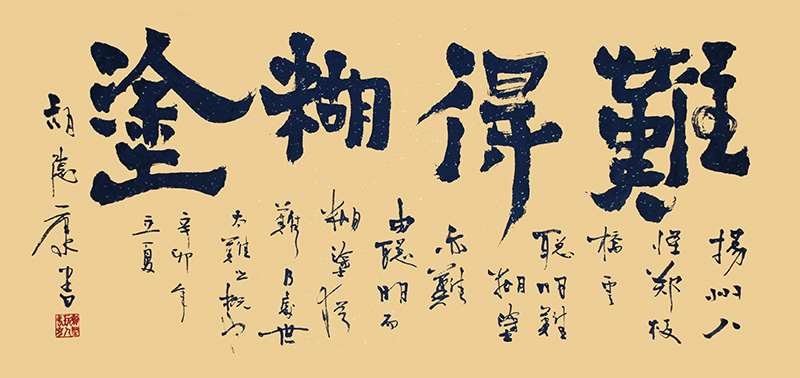 難得糊塗
揚州八
怪鄭板
橋云
聰明難
糊塗
亦難
由聰明而
糊塗
難乃處世
難之
辛卯年
立夏
胡康書